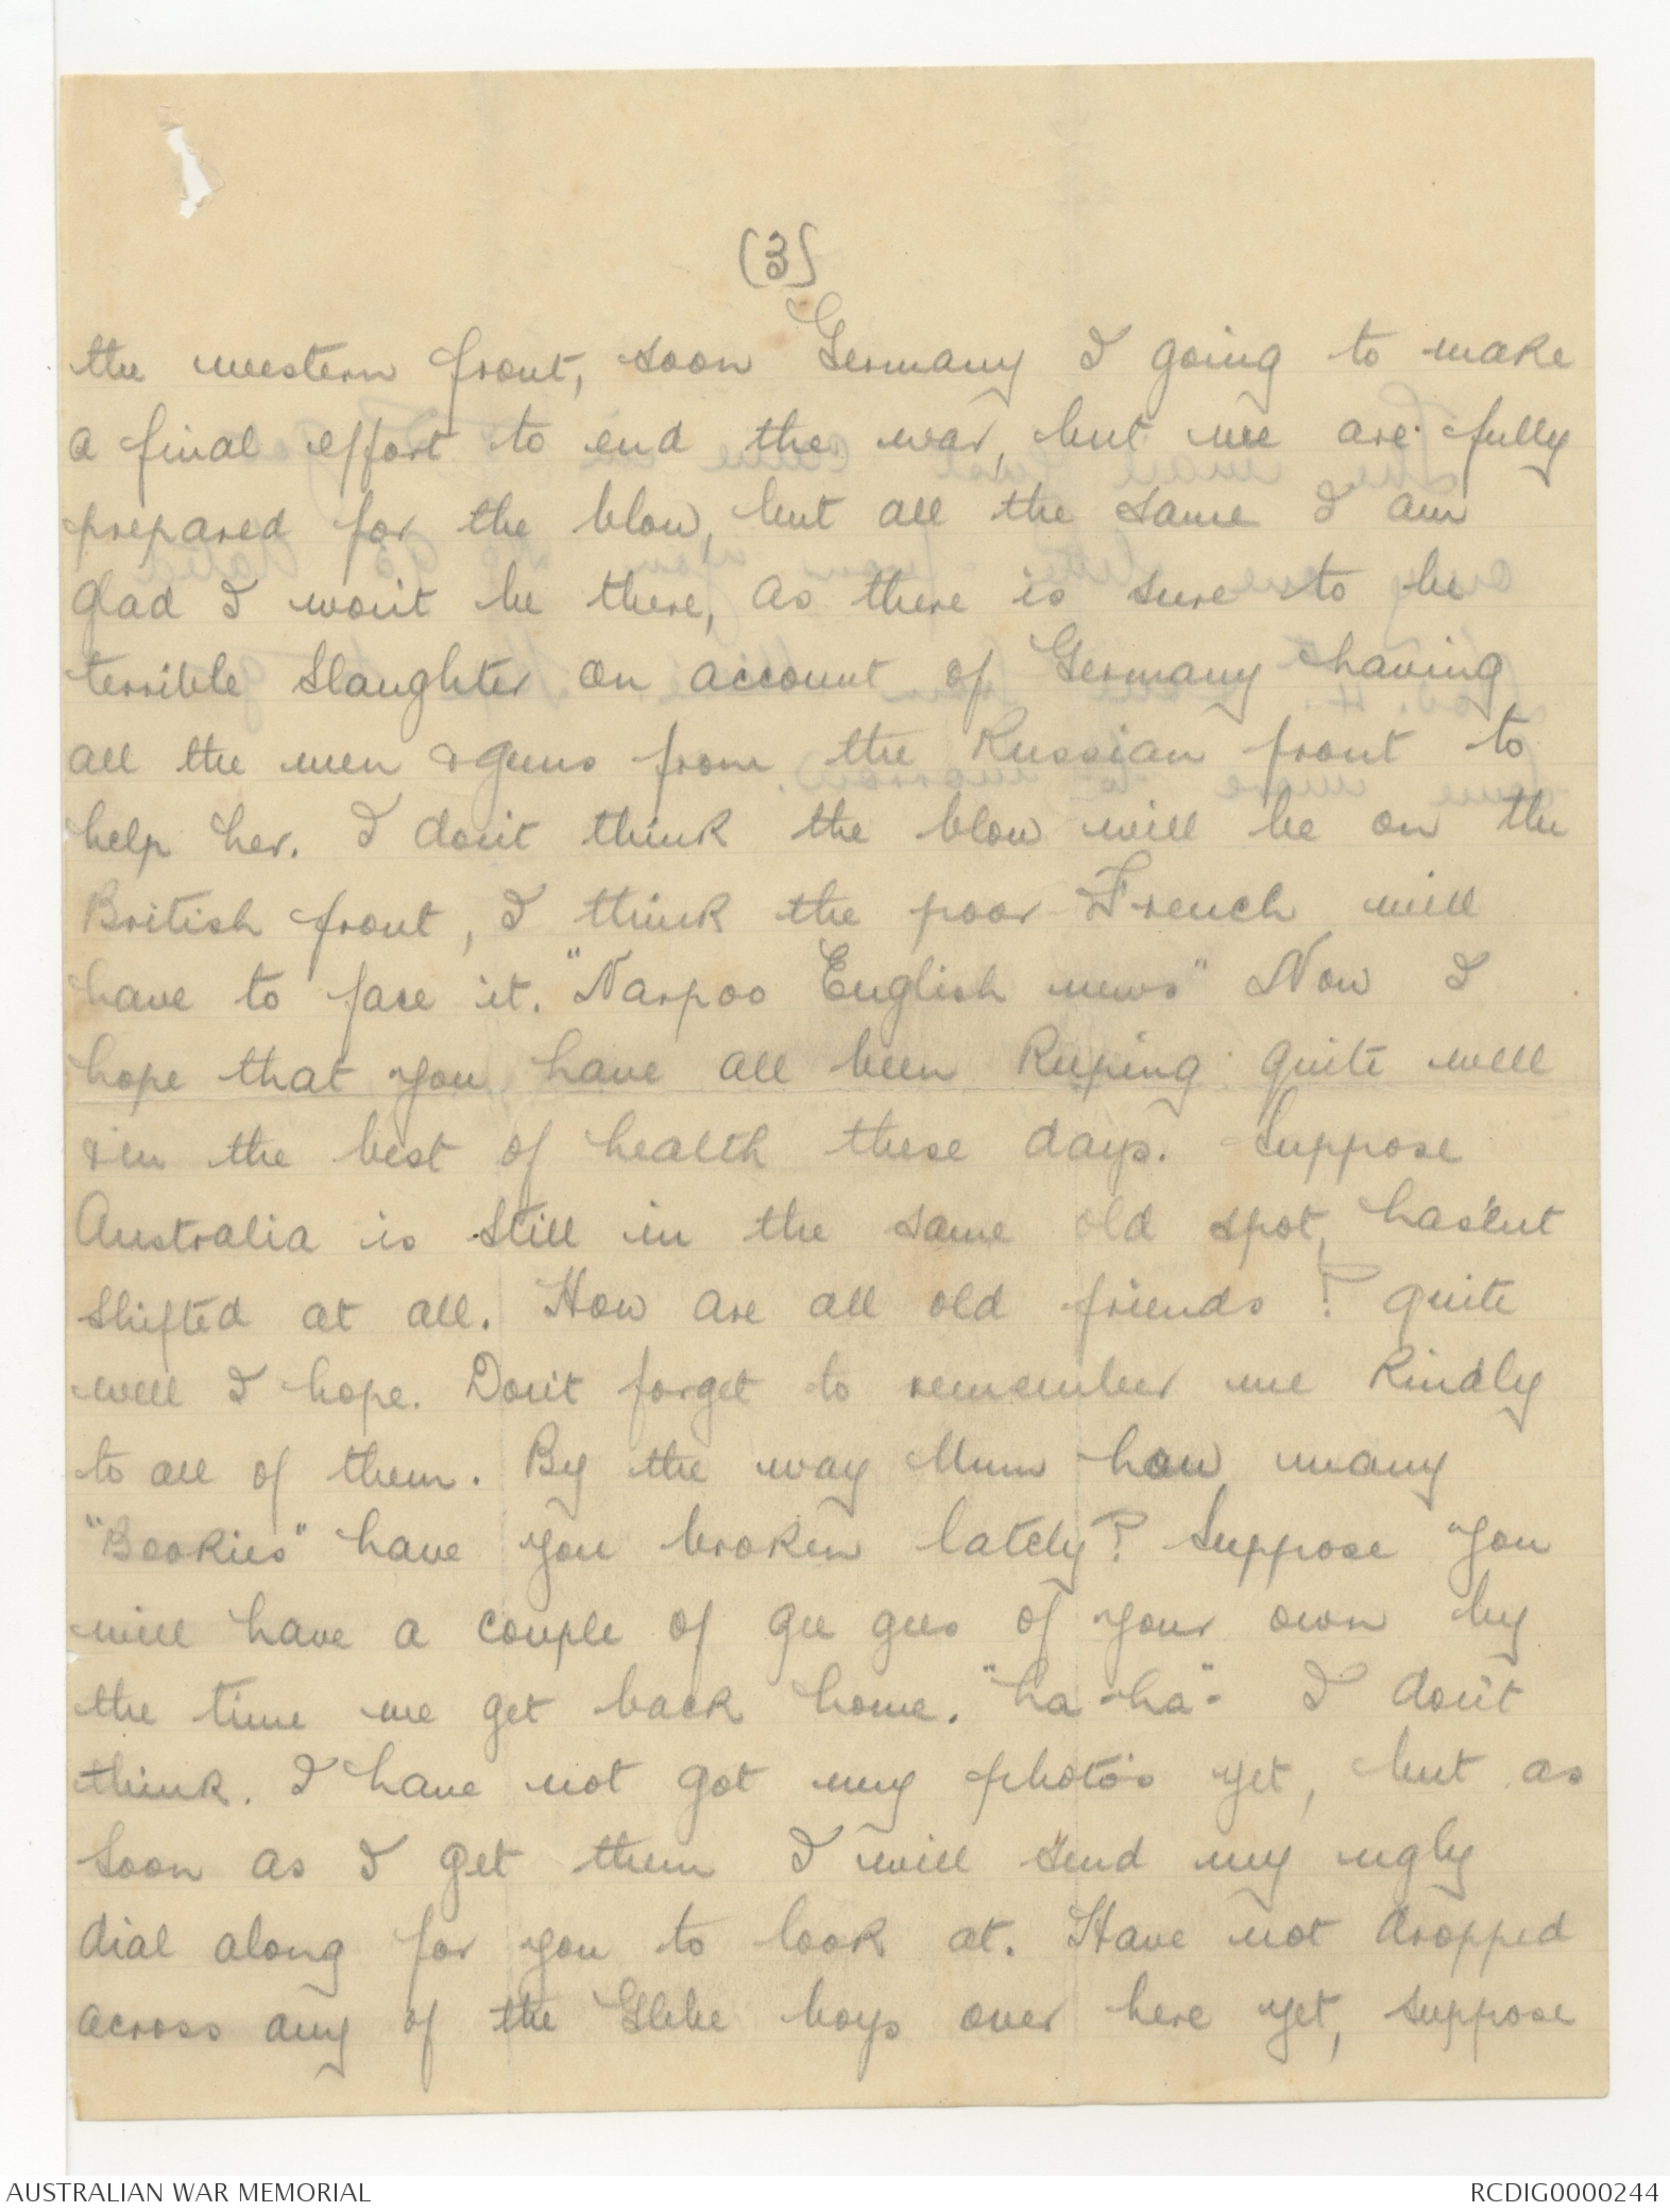 (3)
the western front, soon Germany I going to make
a final effort to end the war, but we are fully
prepared for the blow, but all the same I am
glad I won't be there, as there is sure to be
terrible slaughter on account of Germany having
all the men & guns from the Russian front to
help her. I don't think the blow will be on the
British front, I think the poor French will
have to face it. "Narpoo English news" Now I
hope that you have all been keeping quite well
& in the best of health these days. Suppose
Australia is still in the same old spot, has'ent
shifted at all. How are all old friends? quite
well I hope. Don't forget to remember me kindly
to all of them. By the way Mum how many
"Bookies" have you broken lately? Suppose you
will have a couple of gee gees of your own by
the time we get back home. "ha-ha" I don't
think. I have not got my photo's yet, but as
soon as I get them I will send my ugly
dial along for you to look at. Have not dropped
across any of the Glebe boys over here yet, suppose
AUSTRALIAN WAR MEMORIAL
RCDIG0000244